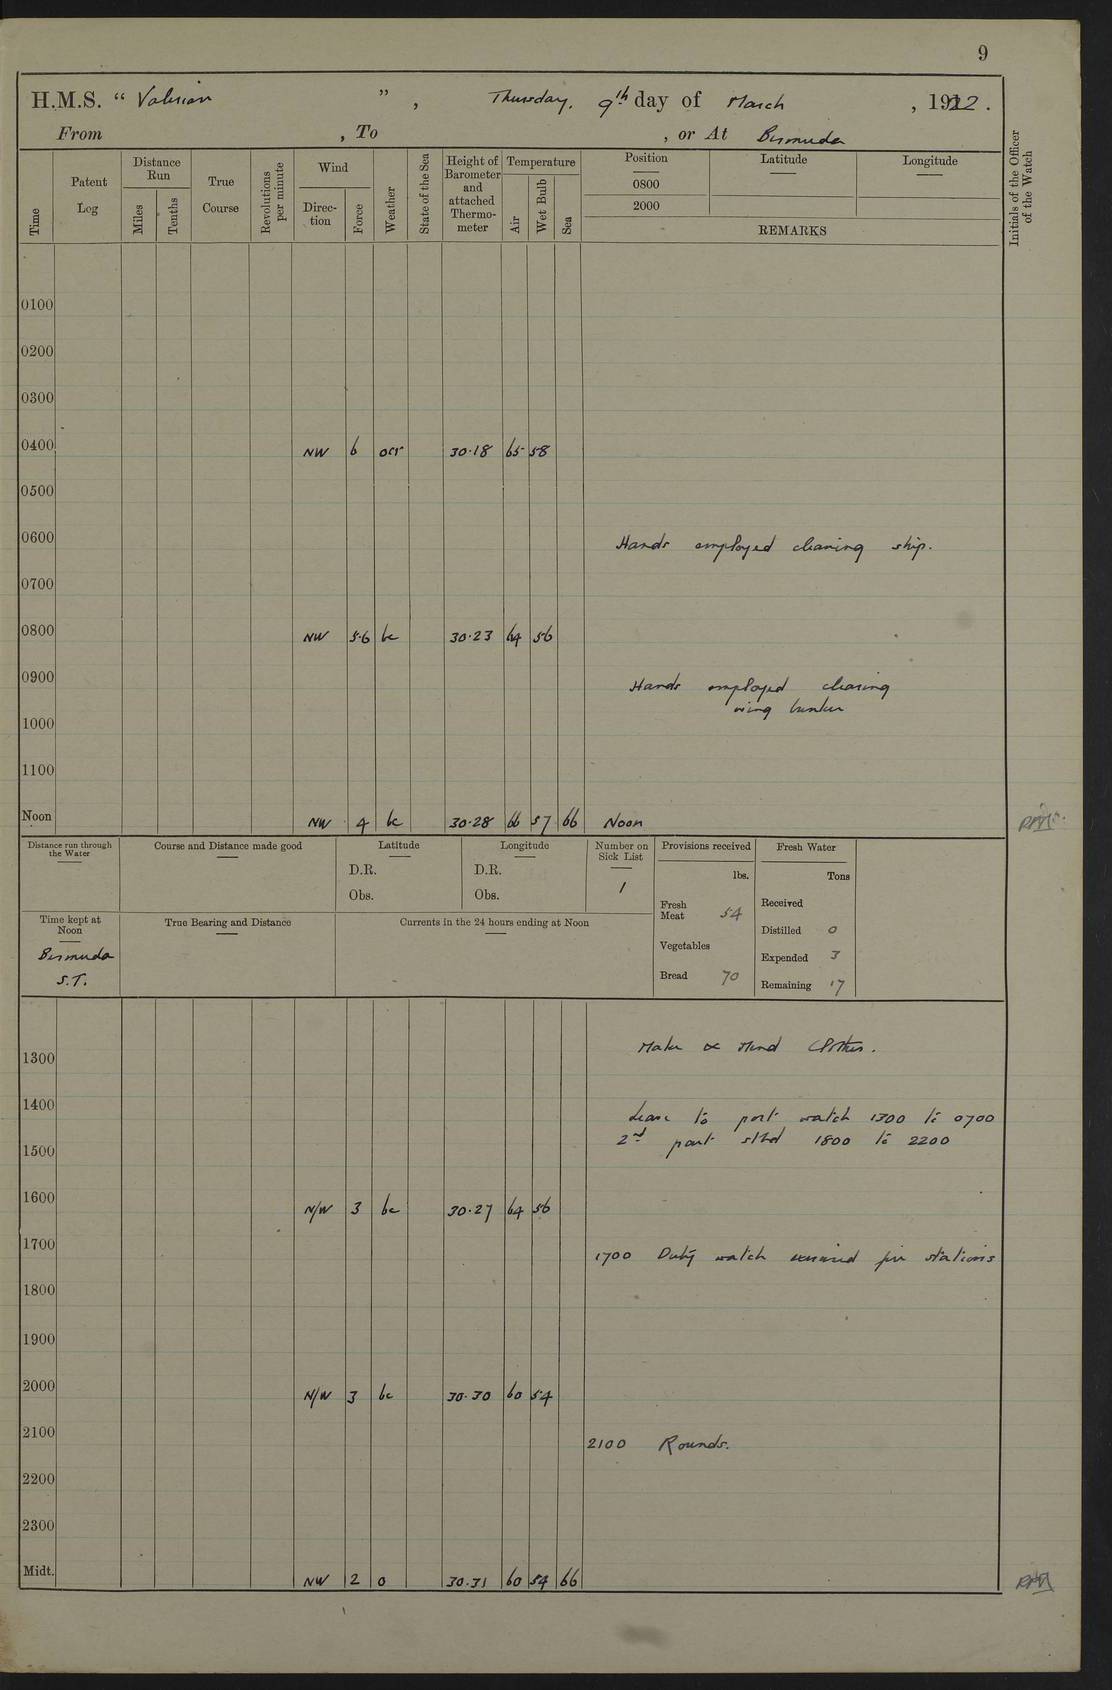 9
H.M.S. " Valerian " , Thursday, 9th day of March , 1922 .
From , To , or At Bermuda
Time
Patent Log
Distance Run
Miles
Tenths
True Course
Revolutions per minute
Wind
Direction
Force
Weather
State of the Sea
Height of Barometer and attached Thermometer
Temperature
Air
Wet Bulb
Sea
Position
Latitude
Longitude
0800
2000
REMARKS
Initials of the Officer of the Watch
0100
0200
0300
0400 NW 6 ocr 30.18 65 58
0500
0600 Hands employed cleaning ship.
0700
0800 NW 5.6 bc 30.23 64 56
0900 Hands employed cleaning
wing bunker
1000
1100
Noon NW 4 bc 30.28 66 57 66 Noon
Distance run through the Water
Course and Distance made good
Latitude
D.R.
Obs.
Longitude
D.R.
Obs.
Number on Sick List
1
Provisions received
lbs.
Fresh Meat 54
Vegetables
Bread 70
Fresh Water
Tons
Received
Distilled 0
Expended 3
Remaining 17
Time kept at Noon
Bermuda
S.T.
True Bearing and Distance
Currents in the 24 hours ending at Noon
Make & Mend Clothes.
1300
1400 Leave to port watch 1300 to 0700
2nd part stbd 1800 to 2200
1500
1600 N/W 3 bc 30.27 64 56
1700 1700 Duty watch exercised fire stations
1800
1900
2000 N/W 3 bc 30.30 60 54
2100 2100 Rounds.
2200
2300
Midt. NW 2 o 30.31 60 54 66